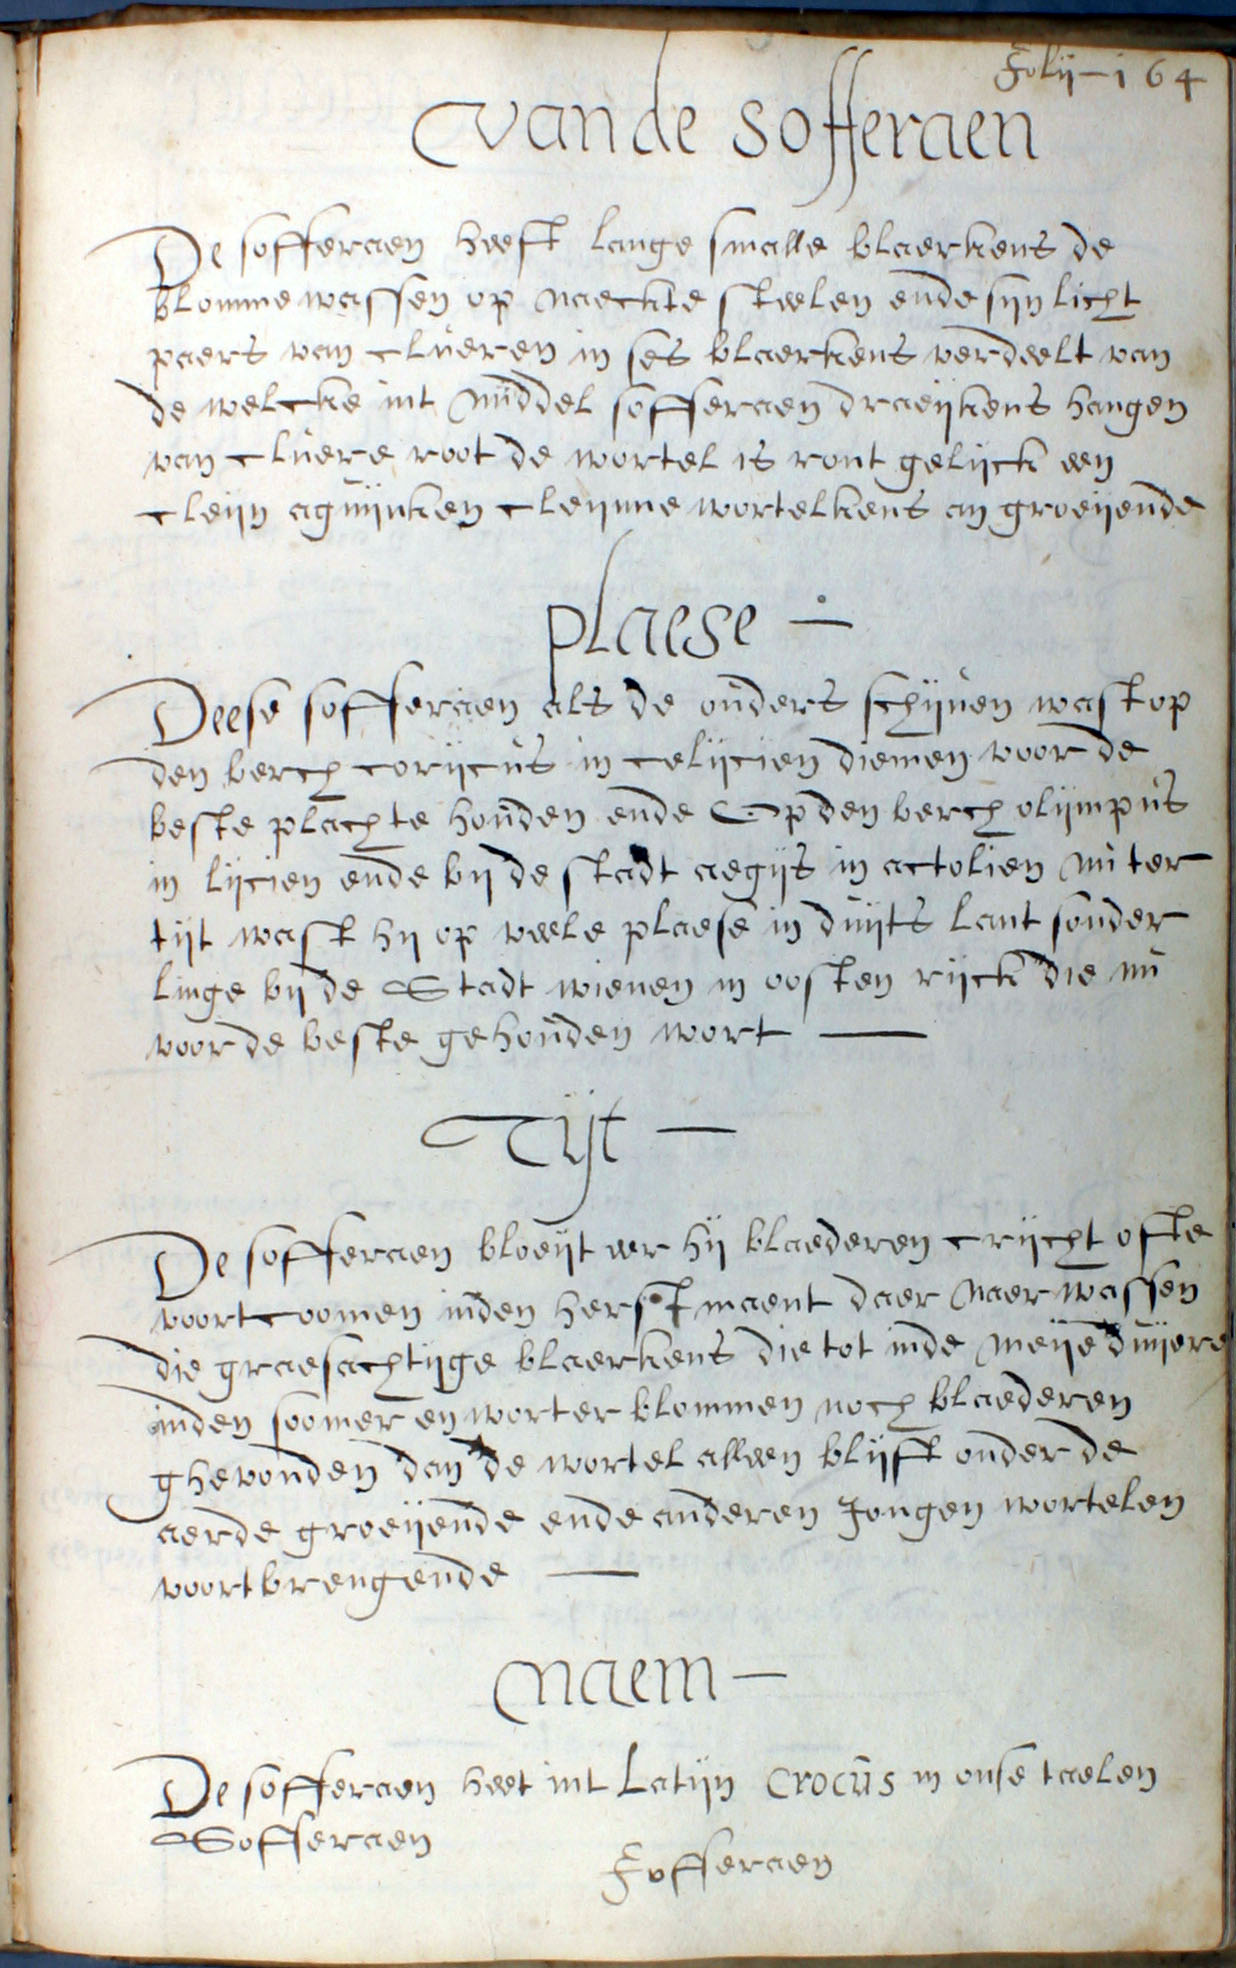 Folij - 164
Vande Sofferaen
De sofferaen heeft lange smalle blaerkens de
blomme wassen op naeckte steelen ende sijn licht
paers van clueren in ses blaerkens verdeelt van
de welcke int middel sofferaen draeijkens hangen
van cluere root de wortel is ront gelijck een
cleijn aguijnken cleijnne wortelkens an groeijende
plaese -
Deese sofferaen als de ouders schijuen wast op
den berch corijcus in celijcien diemen voor de
beste plach te houden ende Op den berch olijmpus
in lijcien ende bij de stadt aegijs in actolien nu ter
tijt wast hij op veele plaese in duijts lant sonder
linge bij de Stadt wienen in oosten rijck die nu
voor de beste gehouden wort
Tijt -
De sofferaen bloeijt eer hij blaederen crijcht ofte
voort coomen inden herfst maent daer naer wassen
die graesachtijge blaerkens die tot inde meije duijere
inden soomer en worter blommen noch blaederen
ghevonden dan de wortel alleen blijft onder de
aerde groeijende ende anderen Jongen wortelen
voortbrengende
Naem -
De sofferaen heet int Latijn Crocus in onse taelen
Sofferaen
Sofferaen